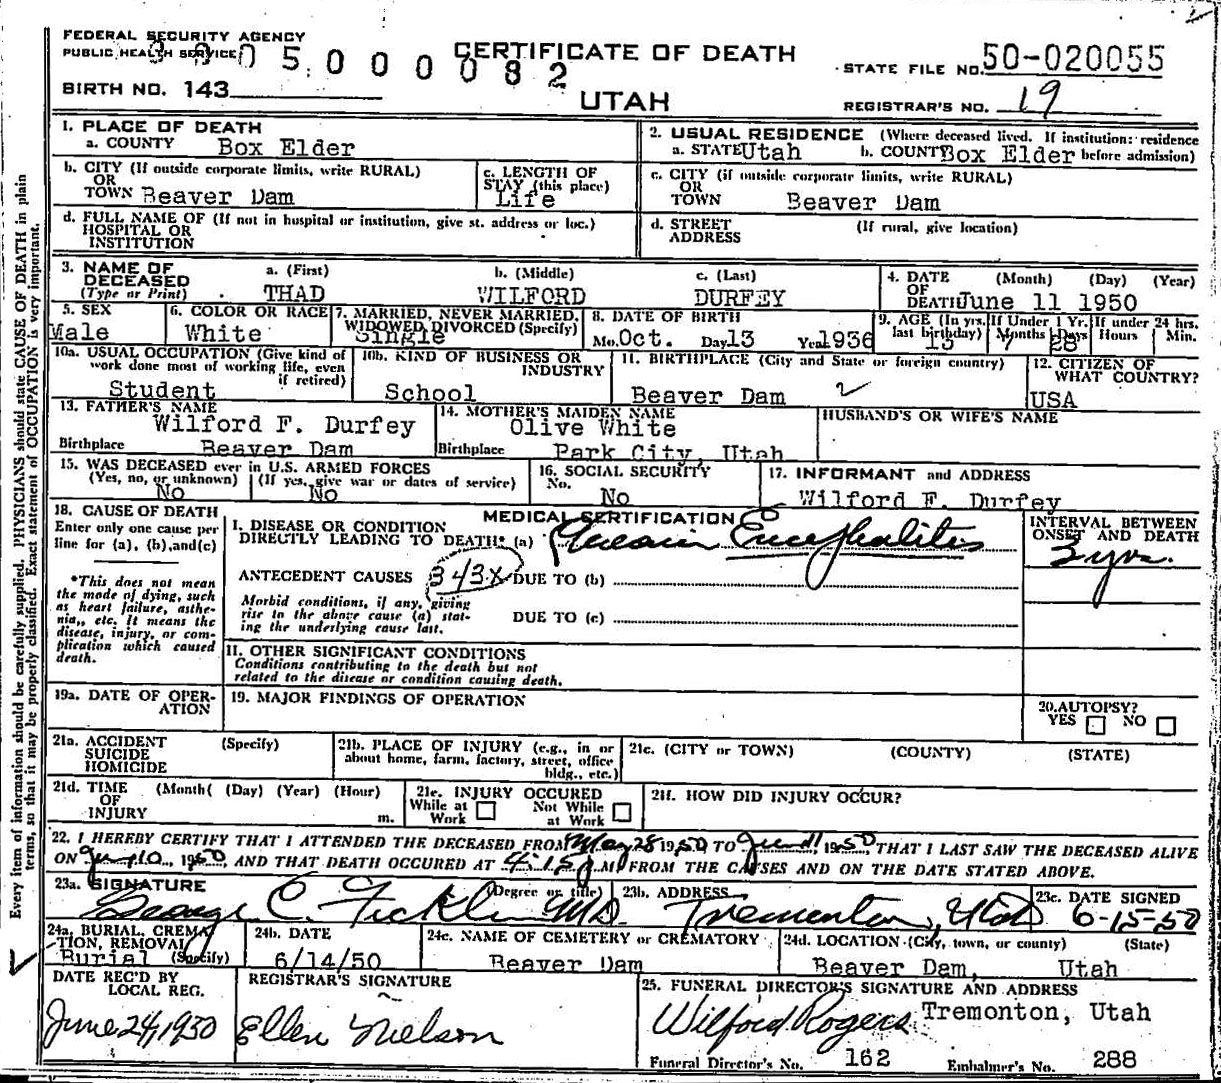 FEDERAL SECURITY AGENCY
PUBLIC HEALTH SERVICE
05 000082
CERTIFICATE OF DEATH
STATE FILE NO. 50-020055
BIRTH NO. 143
UTAH
REGISTRAR'S NO. 19
1. PLACE OF DEATH
a. COUNTY Box Elder
2. USUAL RESIDENCE (Where deceased lived. If institution: residence before admission)
a. STATE Utah b. COUNTY Box Elder
b. CITY (If outside corporate limits, write RURAL)
OR
TOWN Beaver Dam
c. LENGTH OF
STAY (this place)
Life
c. CITY (if outside corporate limits, write RURAL)
OR
TOWN Beaver Dam
d. FULL NAME OF (If not in hospital or institution, give st. address or loc.)
HOSPITAL OR
INSTITUTION
d. STREET (If rural, give location)
ADDRESS
3. NAME OF DECEASED a. (First) b. (Middle) c. (Last)
(Type or Print) THAD WILFORD DURFEY
4. DATE (Month) (Day) (Year)
OF
DEATH June 11 1950
5. SEX
Male
6. COLOR OR RACE
White
7. MARRIED, NEVER MARRIED,
WIDOWED DIVORCED (Specify)
Single
8. DATE OF BIRTH
Mo. Oct. Day 13 Year 1936
9. AGE (In yrs. last birthday) If Under 1 Yr. Months Days If under 24 hrs. Hours Min.
13 7 28
10a. USUAL OCCUPATION (Give kind of
work done most of working life, even
if retired)
Student
10b. KIND OF BUSINESS OR
INDUSTRY
School
11. BIRTHPLACE (City and State or foreign country)
Beaver Dam 2
12. CITIZEN OF
WHAT COUNTRY?
USA
13. FATHER'S NAME
Wilford F. Durfey
Birthplace Beaver Dam
14. MOTHER'S MAIDEN NAME
Olive White
Birthplace Park City, Utah
HUSBAND'S OR WIFE'S NAME
15. WAS DECEASED ever in U.S. ARMED FORCES
(Yes, no, or unknown) (If yes, give war or dates of service)
No No
16. SOCIAL SECURITY
No. No
17. INFORMANT and ADDRESS
Wilford F. Durfey
18. CAUSE OF DEATH
Enter only one cause per
line for (a), (b),and(c)
*This does not mean
the mode of dying, such
as heart failure, asthe-
nia,, etc. It means the
disease, injury, or com-
plication which caused
death.
MEDICAL CERTIFICATION
I. DISEASE OR CONDITION
DIRECTLY LEADING TO DEATH* (a) Encephalitis
INTERVAL BETWEEN
ONSET AND DEATH
3 yrs.
ANTECEDENT CAUSES 343X DUE TO (b)
Morbid conditions, if any, giving
rise to the above cause (a) stat-
ing the underlying cause last.
DUE TO (c)
II. OTHER SIGNIFICANT CONDITIONS
Conditions contributing to the death but not
related to the disease or condition causing death.
19a. DATE OF OPER-
ATION
19. MAJOR FINDINGS OF OPERATION
20. AUTOPSY?
YES NO
21a. ACCIDENT (Specify)
SUICIDE
HOMICIDE
21b. PLACE OF INJURY (e.g., in or
about home, farm, factory, street, office
bldg., etc.)
21c. (CITY or TOWN) (COUNTY) (STATE)
21d. TIME (Month( (Day) (Year) (Hour)
OF
INJURY m.
21e. INJURY OCCURED
While at Work Not While at Work
21f. HOW DID INJURY OCCUR?
22. I HEREBY CERTIFY THAT I ATTENDED THE DECEASED FROM May 28 1950 TO June 11 1950, THAT I LAST SAW THE DECEASED ALIVE
ON Jun 10, 1950, AND THAT DEATH OCCURED AT 4:15 P.M. FROM THE CAUSES AND ON THE DATE STATED ABOVE.
23a. SIGNATURE (Degree or title)
George C. Ficklin MD
23b. ADDRESS
Tremonton, Utah
23c. DATE SIGNED
6-15-50
24a. BURIAL, CREMA-
TION, REMOVAL
Burial (Specify)
24b. DATE
6/14/50
24c. NAME OF CEMETERY or CREMATORY
Beaver Dam
24d. LOCATION (City, town, or county) (State)
Beaver Dam, Utah
DATE REC'D BY
LOCAL REG.
June 24, 1950
REGISTRAR'S SIGNATURE
Ellen Nielson
25. FUNERAL DIRECTOR'S SIGNATURE AND ADDRESS
Wilford Rogers Tremonton, Utah
Funeral Director's No. 162 Embalmer's No. 288
Every item of information should be carefully supplied. PHYSICIANS should state CAUSE OF DEATH in plain
terms, so that it may be properly classified. Exact statement of OCCUPATION is very important.